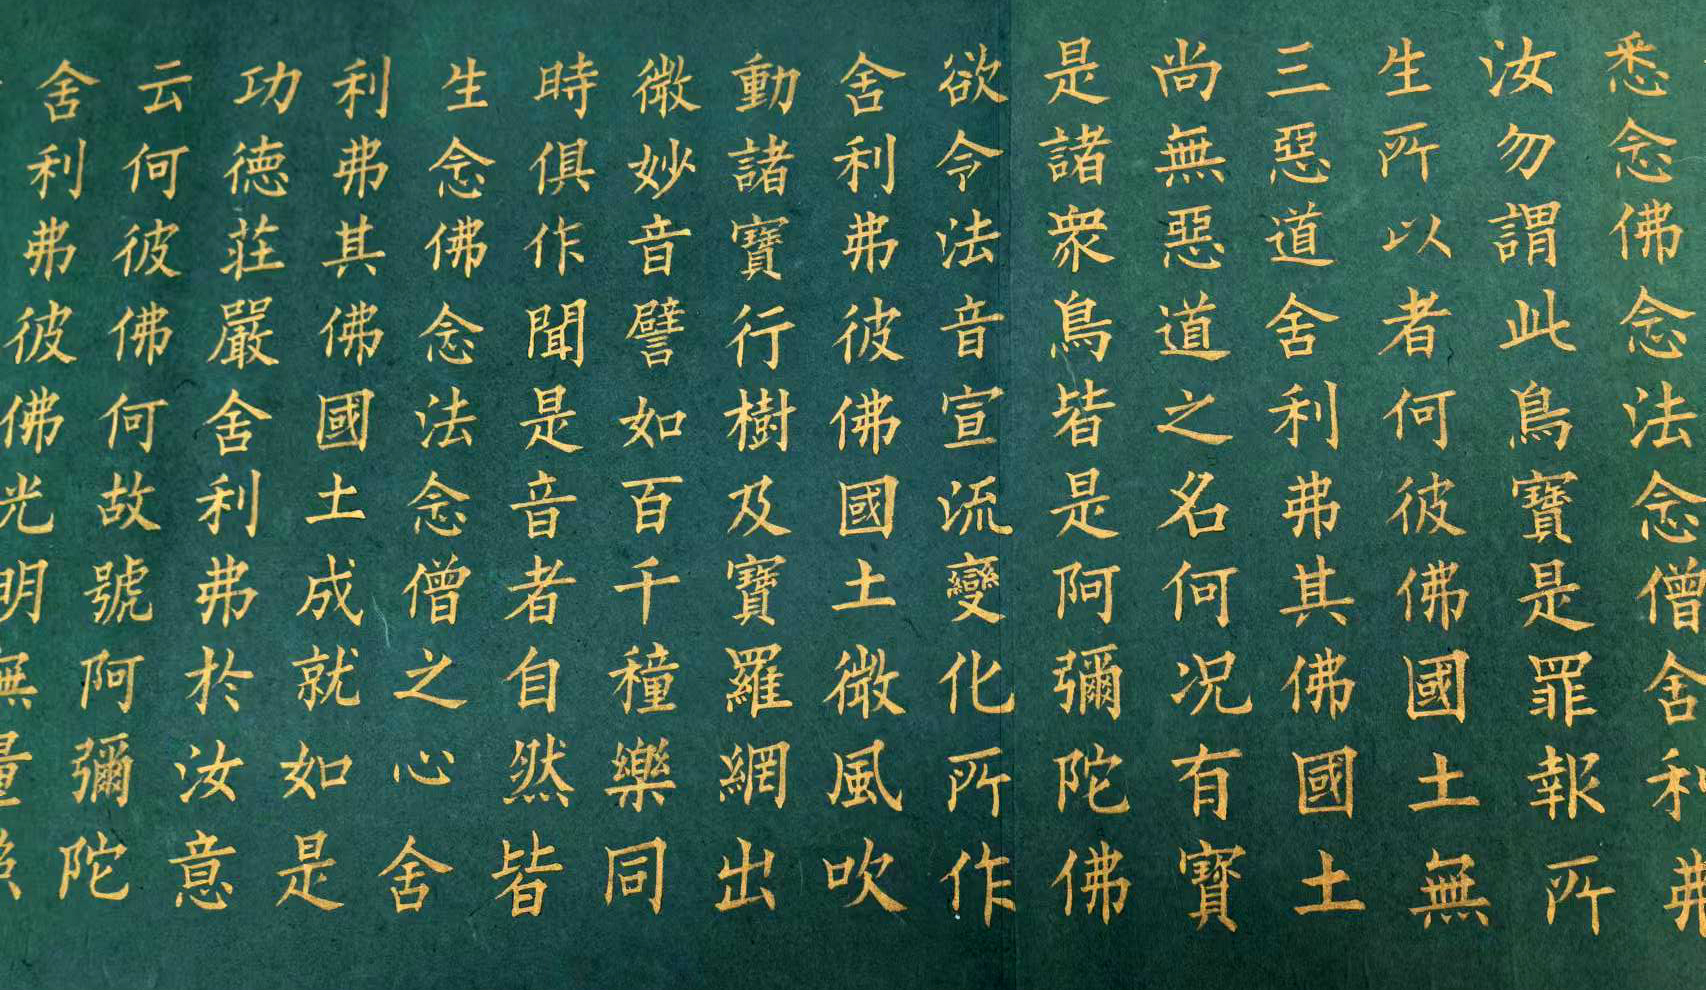 悉念佛念法念僧舍利弗
汝勿謂此鳥寶是罪報所
生所以者何彼佛國土無
三惡道舍利弗其佛國土
尚無惡道之名何况有寶
是諸衆鳥皆是阿彌陀佛
欲令法音宣流變化所作
舍利弗彼佛國土微風吹
動諸寶行樹及寶羅網出
微妙音譬如百千穜樂同
時俱作聞是音者自然皆
生念佛念法念僧之心舍
利弗其佛國土成就如是
功德荘嚴舍利弗於汝意
云何彼佛何故號阿彌陀
舍利弗彼佛光明無量